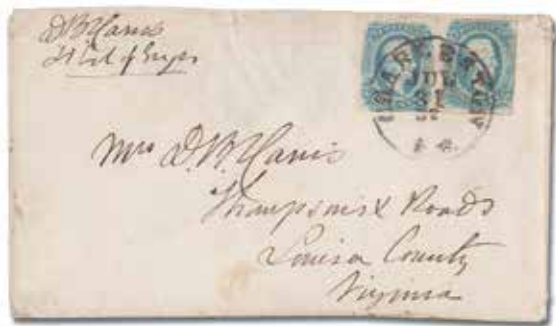 D B Harris
Lt Col of Engrs
JUL
31
Mrs D. B. Harris
Thompsons X Roads
Louisa County
Virginia